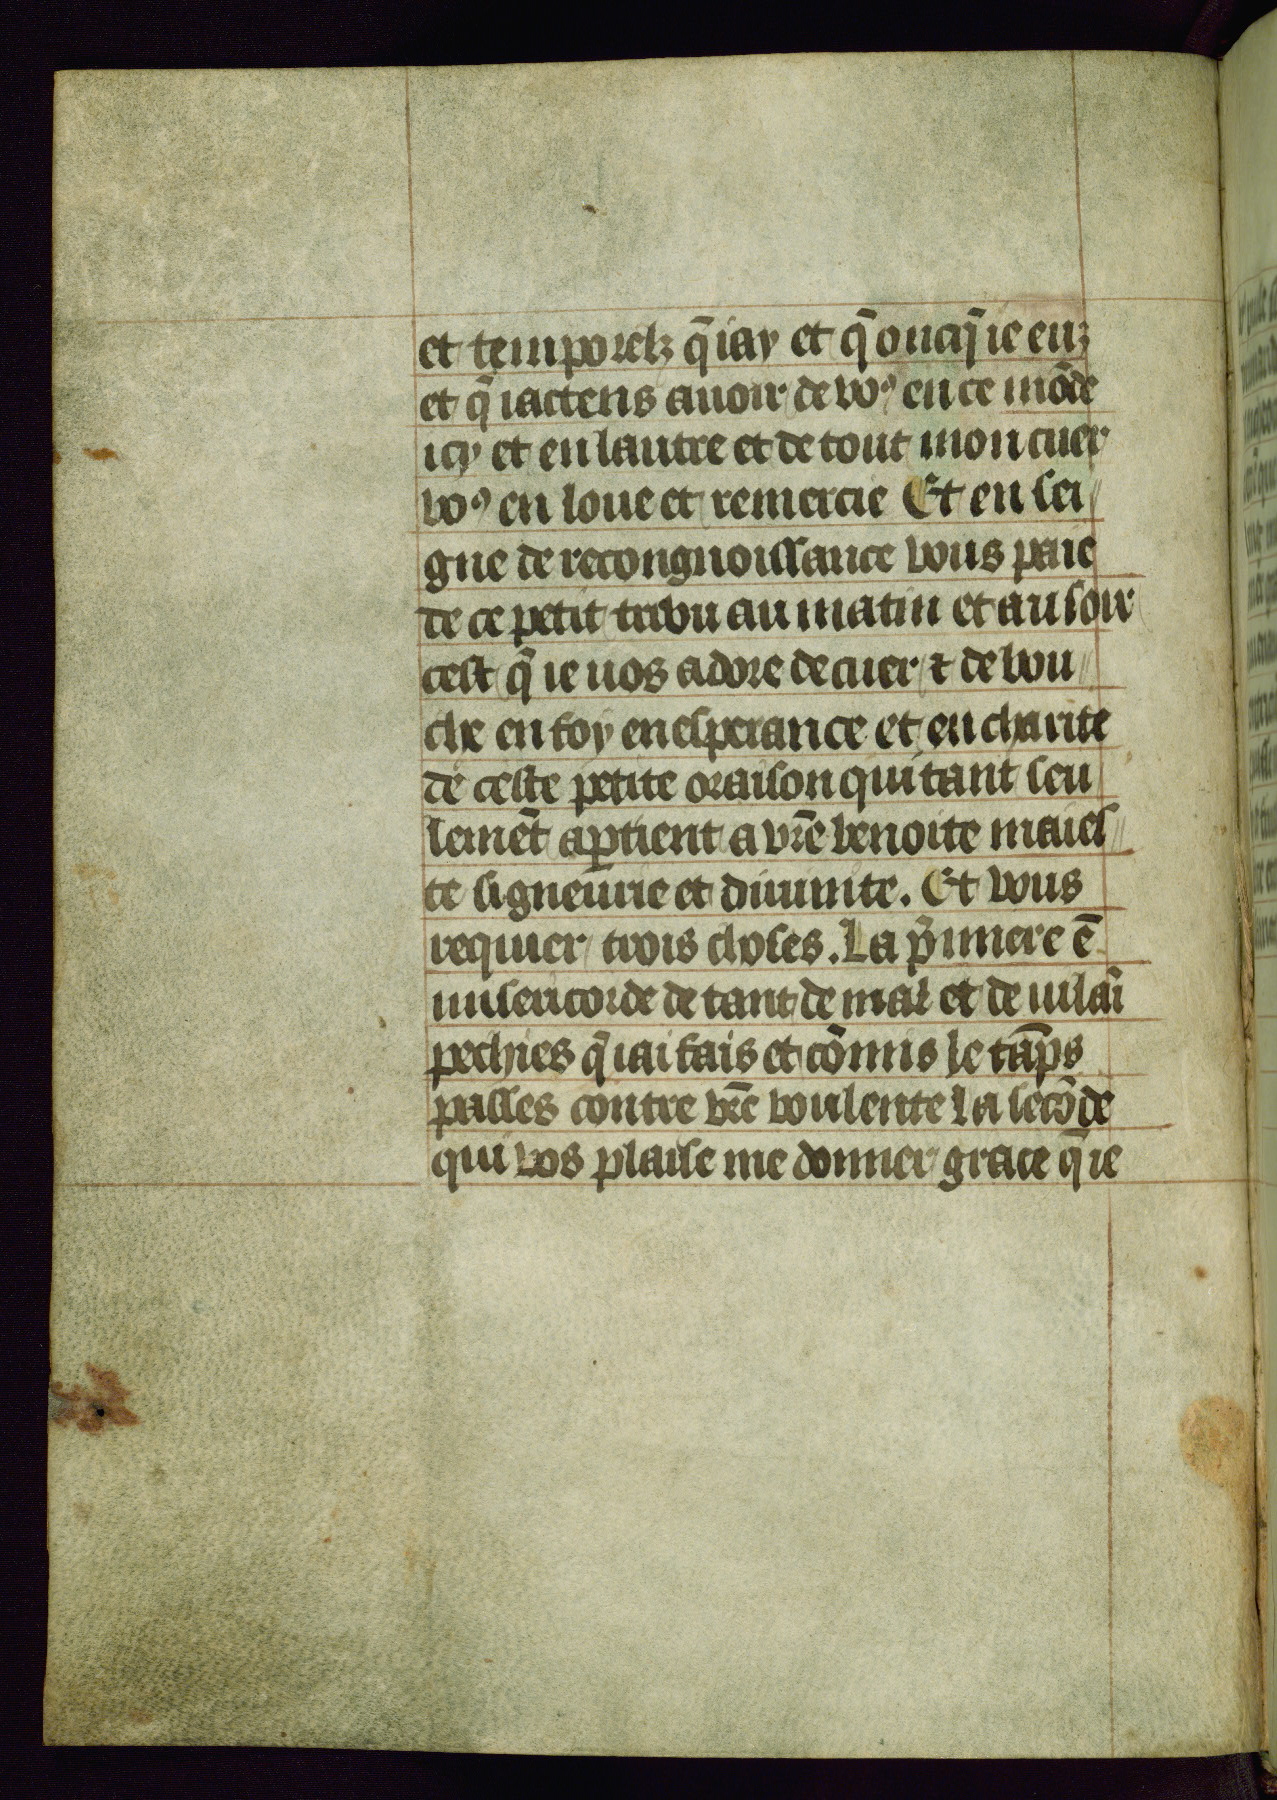 et temporelz q̄ iay et q̄ oncq̄ ie euz
et q̄ iactens auoir de voꝰ en ce mōde
icy et en lautre et de tout mon cuer
voꝰ en loue et remercie Et en sei//
gne de recongnoissance vous paie
de ce petit trebu au matin et au soir
cest q̄ ie uos adore de cuer ⁊ de bou//
che en foy en esperance et en charite
de ceste petite oraison qui tant seu
lemēt aꝑtient a vr̄e benoite maies//
te signeurie et diuinite. Et vous
requier trois choses. La p̄miere ē
misericorde de tant de mal et de uilaī
pechies q̄ iai fais et cōmis le tāps
passes contre vr̄e voulente La secōde
qui vos plaise me donner grace q̄ ie